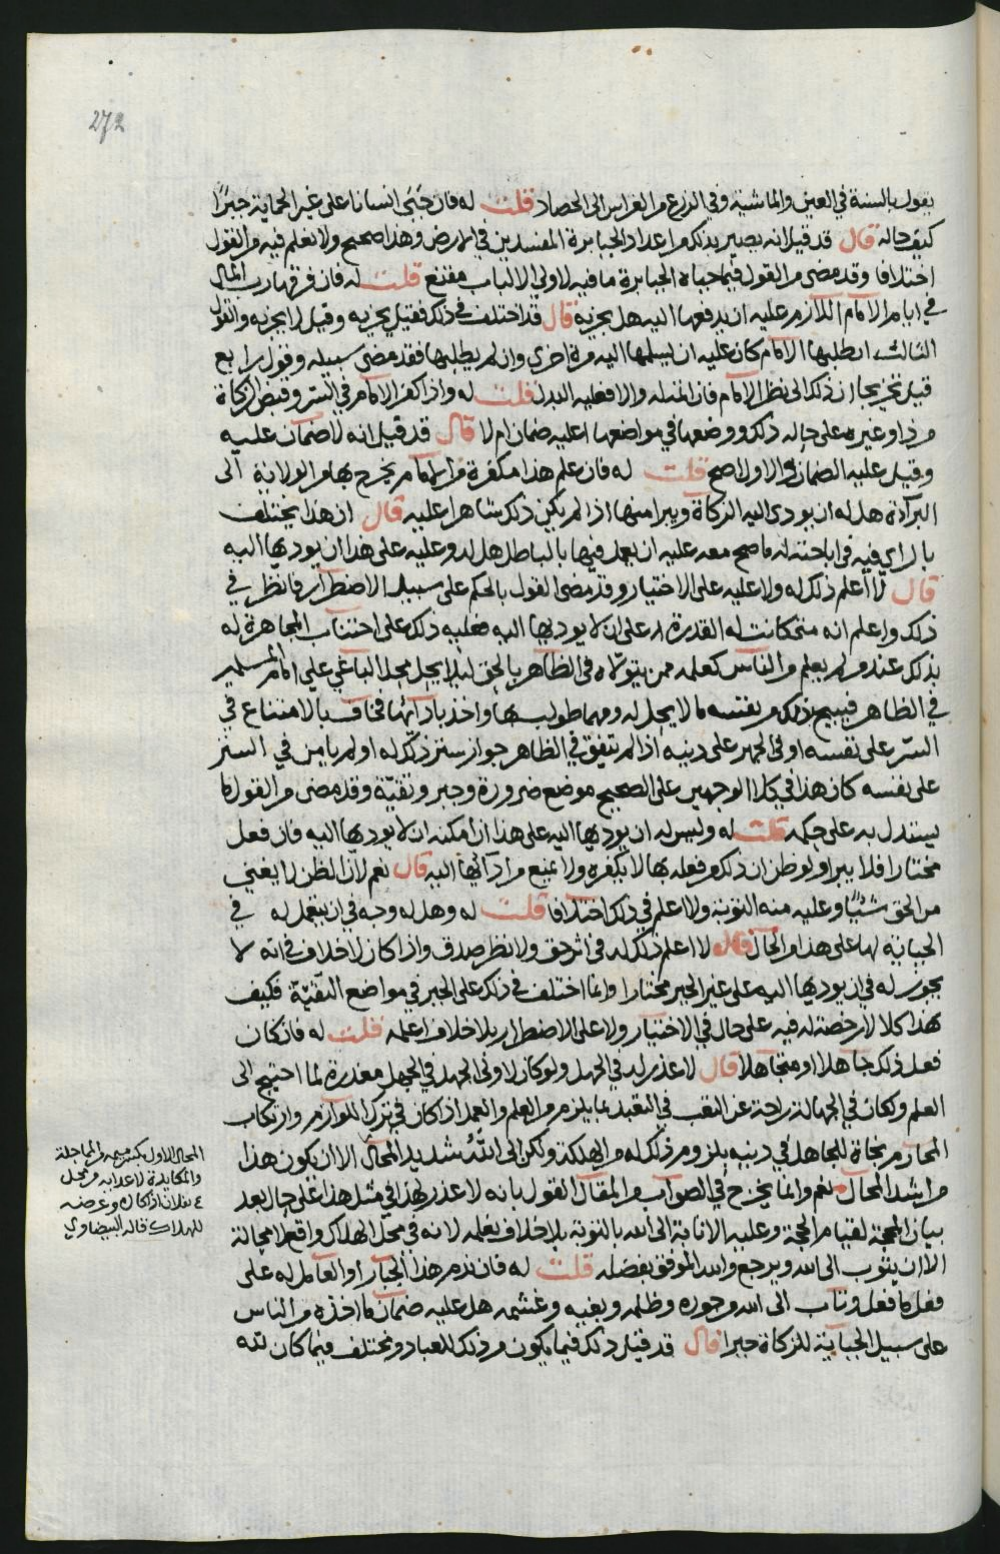 272
يقول بالسنة في العين والماشية وفي الزرع من الغراس الى الحصاد قلت له فان جَبَى انسانا على غير الحماية جبرًا
كيف حاله قال قد قيل انه يصير بذلك من اعداد الجبابرة المفسدين في الارض وهذا صحيح ولا نعلم فيه من القول
اختلافا وقد مضى من القول فيما جباه الجبابرة ما فيه لاولي الالباب مقنع قلت له فان فرقها رب المال
في ايام الامام اللازم عليه ان يدفعها اليه هل يجزيه قال قد اختلف في ذلك فقيل يجزيه وقيل لا يجزيه والقول
الثالث ان طلبها الامام كان عليه ان يسلمها اليه مرة اخرى وان لم يطلبها فقد مضى سبيله وقول رابع
قيل تخريجا ان ذلك الى نظر الامام فان اتمه له والا فعليه البدل قلت له واذا كفر الامام في السّر وقبض الزكاة
من ذا وغيره على حاله ذلك ووضعها في مواضعها اعليه ضمان ام لا قال قد قيل انه لا ضمان عليه
وقيل عليه الضمان والاول اصح قلت له فان علم هذا مكفرة من امام يخرج بها من الولاية الى
البرآءة هل له ان يودى اليه الزكاة ويبرا منها اذا لم يكن ذلك شاهرا عليه قال ان هذا يختلف
بالراي فيه في اباحته له ما صح معه عليه ان يعمل فيها بالباطل هل له وعليه على هذا ان يوديها اليه
قال لا اعلم ذلك له ولا عليه على الاختيار وقد مضى القول بالحكم على سبيل الاضطرار فانظر في
ذلك واعلم انه متى كانت له القدرة على ان لا يوديها اليه فعليه ذلك على اجتناب المجاهرة له
بذلك عند من لم يعلم من الناس كعلمه ممن يتولاه في الظاهر بالحق لئلا يحل محل الباغي على امام المسلمين
في الظاهر فيبيح بذلك من نفسه ما لا يحل له ومهما طولب بها واخذ بادآئها فخاف بالامتناع في
السّر على نفسه او في الجهر على دينه اذا لم يتفق في الظاهر جواز ستر ذلك له او لم يامن في الستر
على نفسه كان هذا في كلا الوجهين على الصحيح موضع ضرورة وجبر وتقيّة وقد مضى من القول ما
يستدل به على حكمه قلت له وليس له ان يوديها اليه على هذا ان امكنه ان لا يوديها اليه فان فعل
مختارا فلا يبرا ولو ظن ان ذلك من فعله بها لا يكفره ولا يمنع من ادآئها اليه قال نعم لان الظن لا يغني
من الحق شيًا وعليه منه التوبة ولا اعلم في ذلك اختلافا قلت له وهل له وجه في ان يتعمل له في
الجباية لها على هذا من الحال قال لا اعلم ذلك له في اثر حق ولا نظر صدق واذا كان لا خلاف في انه لا
يجوز له في ان يوديها اليه على غير الجبر مختارا وانما اختلف في ذلك على الجبر في مواضع التقيّة فكيف
بهذا كلا لا رخصة له فيه على حال في الاختيار ولا على الاضطرار بلا خلاف اعلمه قلت له فان كان
فعل ذلك جاهلا او متجاهلا قال لا عذر له في الجهل ولو كان لاولي الجهل في الجهل معذرة لما احتيج الى
العلم ولكان في الجهالة راحة عن التعب في التعبد بما يلزم من العلم والعمل اذا كان في ترك اللوازم وارتكاب
المحارم نجاة للجاهل في دينه يلزوم ذلك له من الهلكة ولكن الى اللّٰه شديد المحال الا ان يكون هذا
من اشد المحال نعم وانما يخرج في الصواب من المقال القول بانه لا عذر لهذا في مثل هذا على حال بعد
بيان المحجة لقيام الحجة وعليه الانابة الى الله بالتوبة بلا خلاف نعلمه لانه في محل الهلاك واقع لا محالة
الا ان يتوب الى الله ويرجع والله الموفق بفضله قلت له فان ندم هذا الجبار او العامل له على
فعل ما فعل وتاب الى الله من جوره وظلمه وبغيه وغشمه هل عليه ضمان ما اخذه من الناس
على سبيل الجباية للزكاة جبرا قال قد قيل ذلك فيما يكون من ذلك للعباد ومختلف فيما كان لله
المحال الاول بكسر ميمه من المماحلة
والمكايدة لاعدايه من محل
بفلان اذا كاده وعرضه
للهلاك قاله البيضاوي